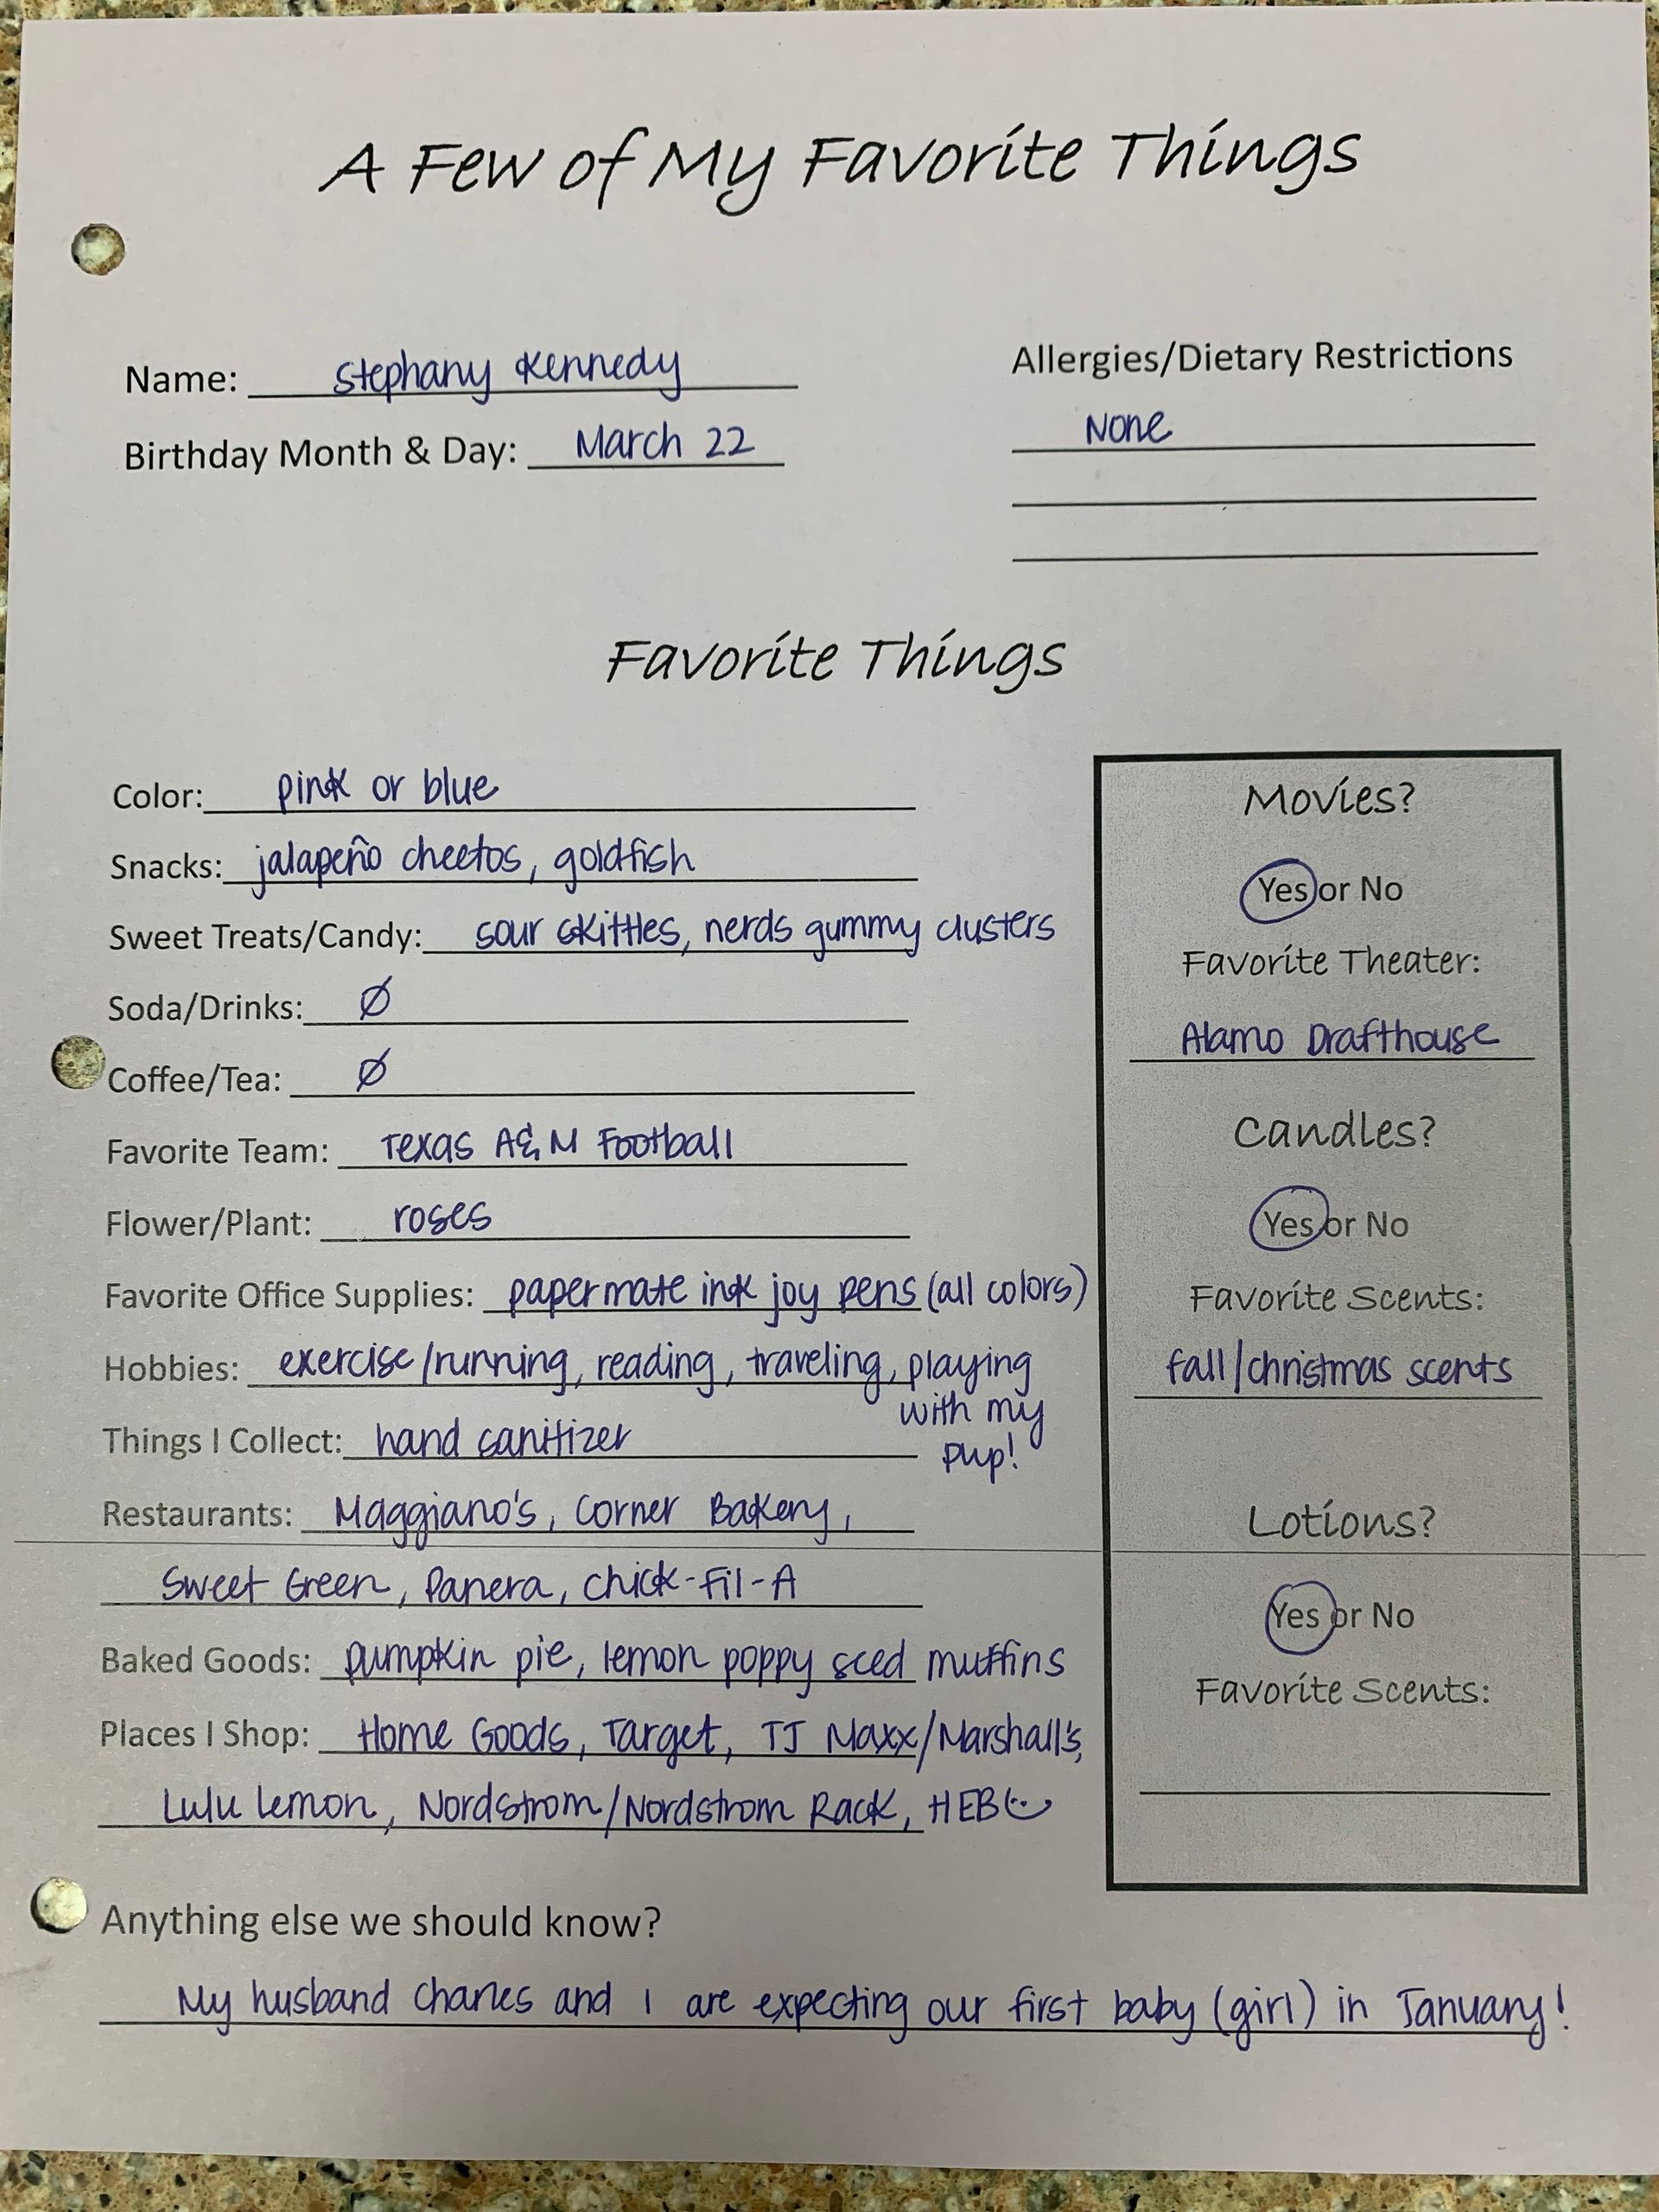 A Few of My Favorite Things
Name: Stephany Kennedy
Birthday Month & Day: March 22
Allergies/Dietary Restrictions
None
Favorite Things
Color: pink or blue
Snacks: jalapeño cheetos, goldfish
Sweet Treats/Candy: sour skittles, nerds gummy clusters
Soda/Drinks: Ø
Coffee/Tea: Ø
Favorite Team: Texas A&M Football
Flower/Plant: roses
Favorite Office Supplies: papermate ink joy pens (all colors)
Hobbies: exercise/running, reading, traveling, playing
with my
pup!
Things I Collect: hand sanitizer
Restaurants: Maggiano's, Corner Bakery,
Sweet Green, Panera, Chick-fil-A
Baked Goods: pumpkin pie, lemon poppy seed muffins
Places I Shop: Home Goods, Target, TJ Maxx/Marshall's,
Lulu lemon, Nordstrom/Nordstrom Rack, HEB
Movies?
Yes or No
Favorite Theater:
Alamo Drafthouse
Candles?
Yes or No
Favorite Scents:
fall/christmas scents
Lotions?
Yes or No
Favorite Scents:
Anything else we should know?
My husband Charles and I are expecting our first baby (girl) in January!